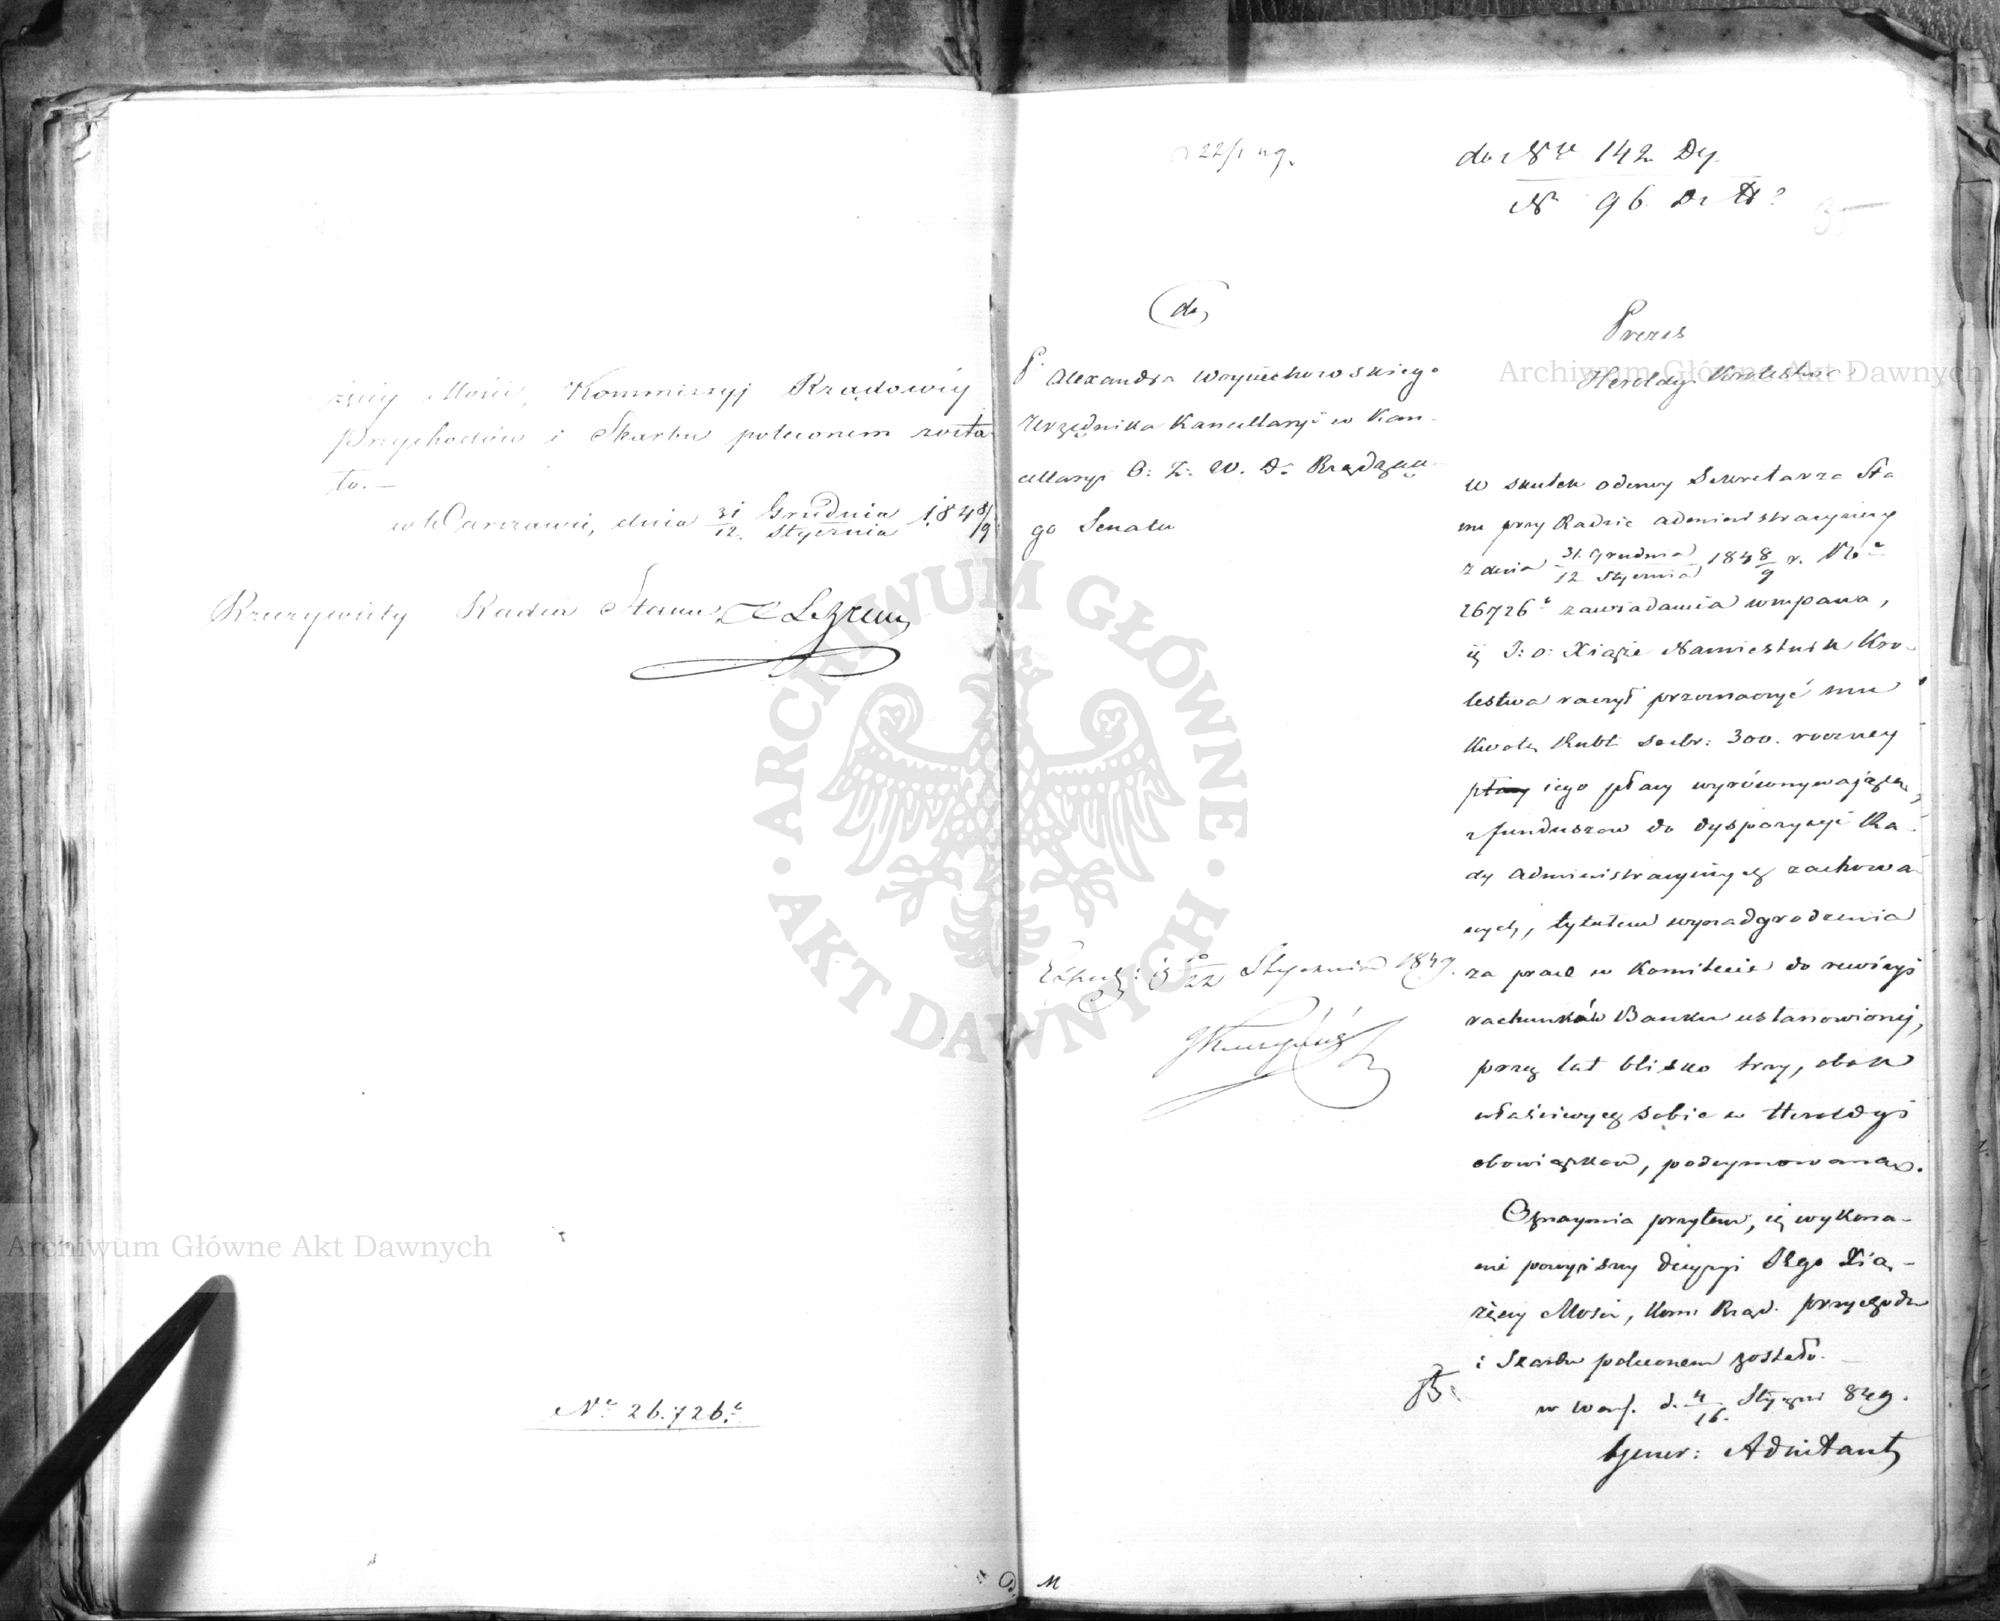 żęcy Mości, Kommissyj Rządowéy
Przychodów i Skarbu poleconem zosta
ło. —
w Warszawie, dnia 31 Grudnia / 12. Stycznia 1848/9
Rzeczywisty Radca Stanu,
Nr 26.726.
22/1 49.
do Nr 142 Dy.
N 96. D. H
35
do
P. Alexandra Woyciechowskiego
Urzędnika Kancellaryi w Kan-
cellaryi O. Z. W. D. Rządzące-
go Senatu
Exped: 10/22 Stycznia 1849.
Prezes
Heroldyi Królestwa
W skutek odezwy Sekretarza Sta
nu przy Radzie administracyjney
z dnia 31. Grudnia / 12 Stycznia 1848/9 r. No
26726 zawiadamia wmpana,
iż J: O: Xiąże Namiestnik Kró-
lestwa raczył przeznaczyć mu
kwotę Rubl. srebr: 300. roczney
płacy iego płacy wyrównywającą,
z funduszow do dyspozycyi Ra-
dy Administracyjnych zachowa-
nych, tytułem wynadgrodzenia
za prace w Komitecie do rewizyi
rachunków Banku ustanowionej,
przez lat blisko trzy, obok
właściwych sobie w Heroldyi
obowiązków, podeymowane.
Oznaymia przytem, iż wykona-
nie powyższey decyzyi Jego Xią-
żęcy Mości, Kom: Rząd. przychodu
i Skarbu poleconem zostało. —
w Warsz. d. 4/16. Stycznia 849.
Gener: Adiutant
M
Archiwum Główne Akt Dawnych
Archiwum Główne Akt Dawnych
ARCHIWUM GŁÓWNE · AKT DAWNYCH ·